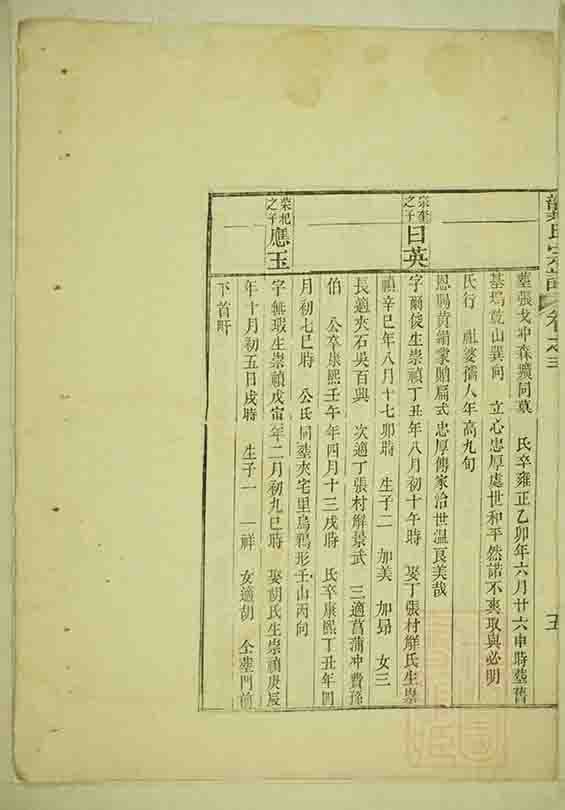 龔氏宗譜 卷之三 五
墓張戈冲森壙同墓 氏卒雍正乙卯年六月廿六申時塟舊
基塢乾山巽向 立心忠厚處世和平然諾不爽取與必明
氏行 祖婆孺人年高九旬
恩賜黃絹蒙贈扁式忠厚傳家治世温良美哉
宗奎之子 日英 字爾俊生崇禎丁丑年八月初十午時 娶丁張村解氏生崇
禎辛巳年八月十七卯時 生子二 加美 加昻 女三
長適夾石吳百與 次適丁張村解景武 三適菖蒲冲費孫
伯 公卒康熙壬午年四月十三戌時 氏卒康熙丁丑年閏
月初七巳時 公氏同塟夾宅里烏鴉形壬山丙向
榮杞之子 應玉 字無瑕生崇禎戊寅年二月初九巳時 娶胡氏生崇禎庚辰
年十月初五日戌時 生子一 一祥 女適胡 仝塟門前
下首旴